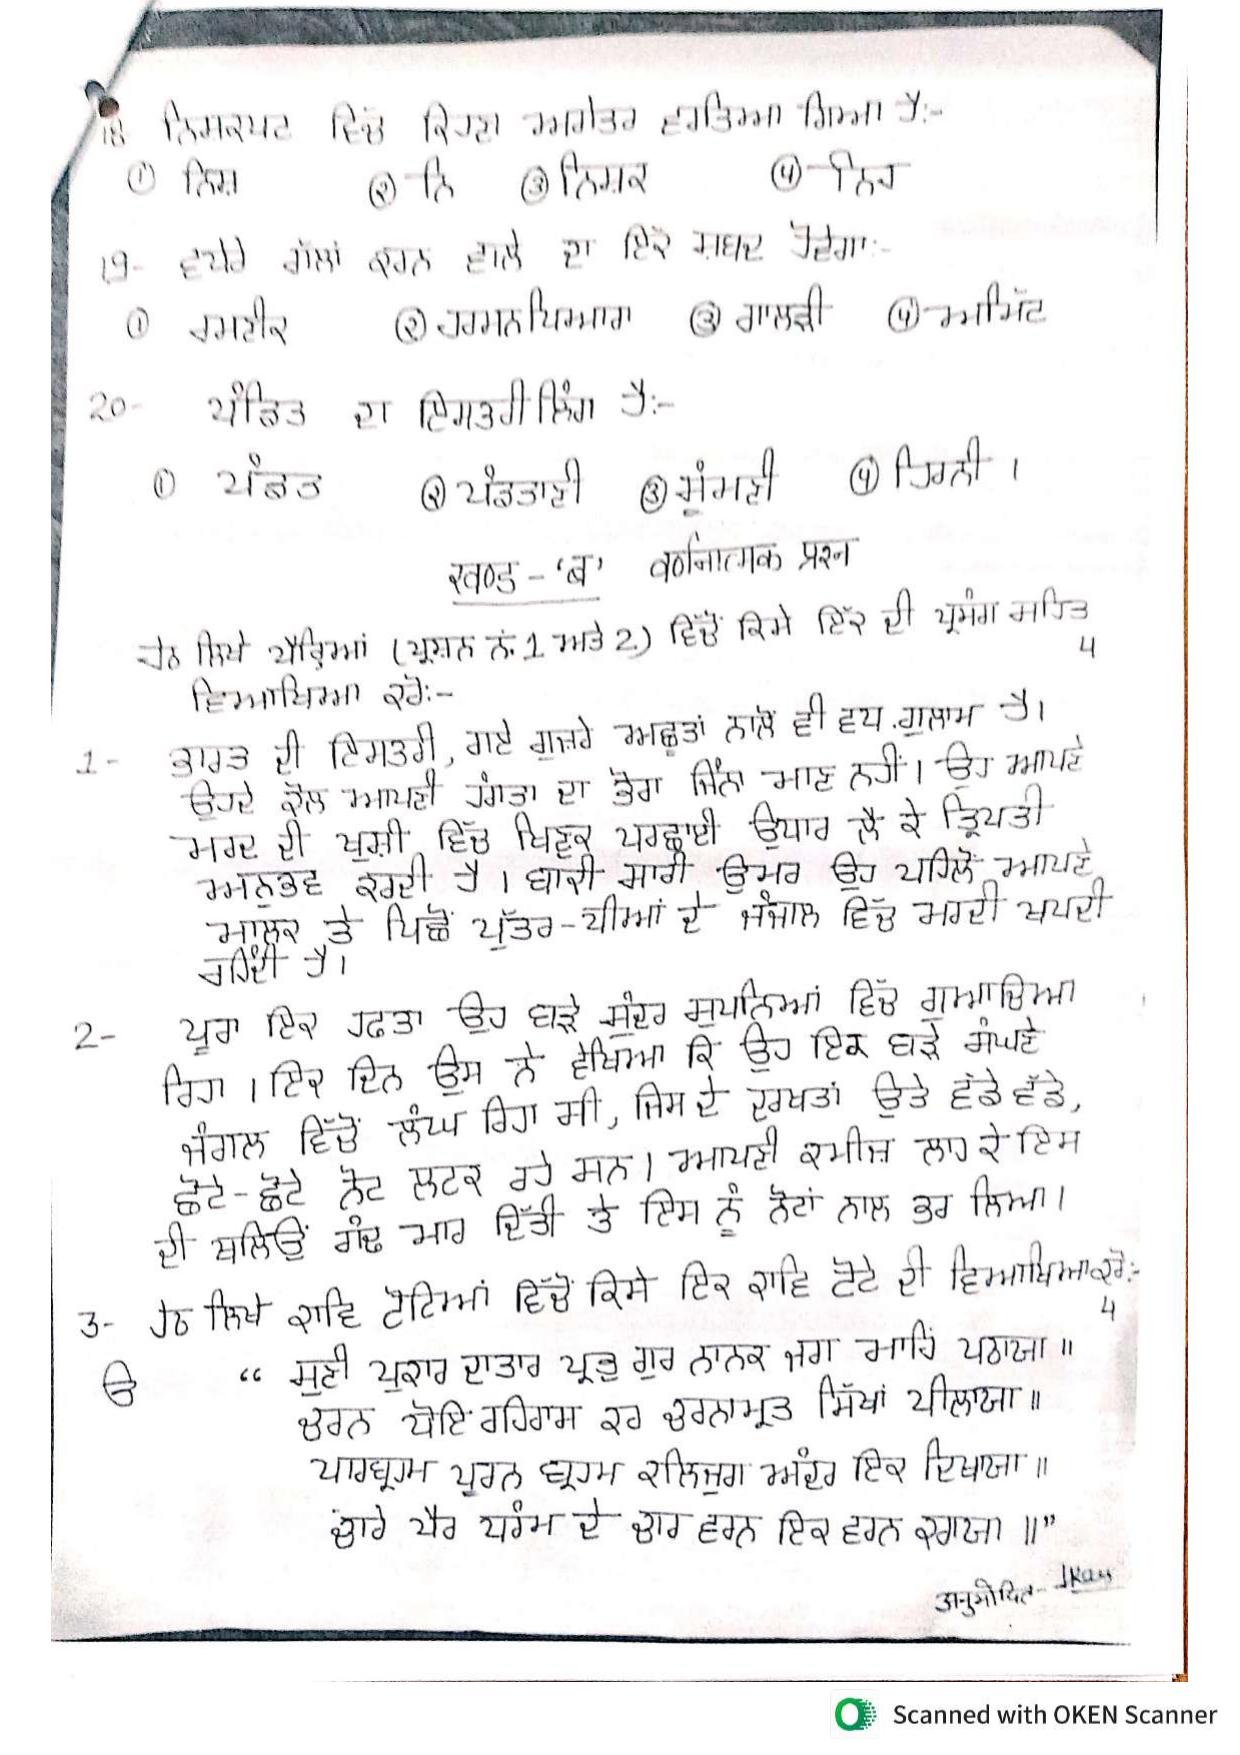 18 ਨਿਸ਼ਕਪਟ ਵਿੱਚ ਕਿਹੜਾ ਅਗੇਤਰ ਵਰਤਿਆ ਗਿਆ ਹੈ:-
① ਨਿਸ਼ ② ਨਿ ③ ਨਿਸ਼ਕ ④ ਨਿਹ
19- ਵਧੇਰੇ ਗੱਲਾਂ ਕਰਨ ਵਾਲੇ ਦਾ ਇਕੋ ਸ਼ਬਦ ਹੋਵੇਗਾ:-
① ਰਮਣੀਕ ② ਹਰਮਨਪਿਆਰਾ ③ ਗਾਲੜੀ ④ ਅਮਿੱਟ
20- ਪੰਡਿਤ ਦਾ ਇਸਤਰੀ ਲਿੰਗ ਹੈ:-
① ਪੰਡਤ ② ਪੰਡਤਾਣੀ ③ ਸੂੰਮਣੀ ④ ਹਿਰਨੀ ।
खण्ड - 'ब' वर्णनात्मक प्रश्न
ਹੇਠ ਲਿਖੇ ਪੈਰ੍ਹਿਆਂ (ਪ੍ਰਸ਼ਨ ਨੰ. 1 ਅਤੇ 2) ਵਿੱਚੋਂ ਕਿਸੇ ਇੱਕ ਦੀ ਪ੍ਰਸੰਗ ਸਹਿਤ
ਵਿਆਖਿਆ ਕਰੋ:- 4
1- ਭਾਰਤ ਦੀ ਇਸਤਰੀ, ਗਏ ਗੁਜ਼ਰੇ ਅਛੂਤਾਂ ਨਾਲੋਂ ਵੀ ਵਧ ਗੁਲਾਮ ਹੈ।
ਉਹਦੇ ਕੋਲ ਆਪਣੀ ਹੰਗਤਾ ਦਾ ਭੋਰਾ ਜਿੰਨਾ ਮਾਣ ਨਹੀਂ। ਉਹ ਆਪਣੇ
ਮਰਦ ਦੀ ਖੁਸ਼ੀ ਵਿੱਚ ਖਿਣਕ ਪਰਛਾਈ ਉਧਾਰ ਲੈ ਕੇ ਤ੍ਰਿਪਤੀ
ਅਨੁਭਵ ਕਰਦੀ ਹੈ। ਬਾਕੀ ਸਾਰੀ ਉਮਰ ਉਹ ਪਹਿਲੋਂ ਆਪਣੇ
ਮਾਲਕ ਤੇ ਪਿਛੋਂ ਪੁੱਤਰ-ਧੀਆਂ ਦੇ ਜੰਜਾਲ ਵਿੱਚ ਮਰਦੀ ਖਪਦੀ
ਰਹਿੰਦੀ ਹੈ।
2- ਪੂਰਾ ਇਕ ਹਫਤਾ ਉਹ ਬੜੇ ਸੁੰਦਰ ਸੁਪਨਿਆਂ ਵਿੱਚ ਗੁਆਚਿਆ
ਰਿਹਾ। ਇਕ ਦਿਨ ਉਸ ਨੇ ਵੇਖਿਆ ਕਿ ਉਹ ਇਕ ਬੜੇ ਸੰਘਣੇ
ਜੰਗਲ ਵਿੱਚੋਂ ਲੰਘ ਰਿਹਾ ਸੀ, ਜਿਸ ਦੇ ਦਰਖਤਾਂ ਉਤੇ ਵੱਡੇ ਵੱਡੇ,
ਛੋਟੇ-ਛੋਟੇ ਨੋਟ ਲਟਕ ਰਹੇ ਸਨ। ਆਪਣੀ ਕਮੀਜ਼ ਲਾਹ ਕੇ ਇਸ
ਦੀ ਥਲਿਉਂ ਗੰਢ ਮਾਰ ਦਿੱਤੀ ਤੇ ਇਸ ਨੂੰ ਨੋਟਾਂ ਨਾਲ ਭਰ ਲਿਆ।
3- ਹੇਠ ਲਿਖੇ ਕਾਵਿ ਟੋਟਿਆਂ ਵਿੱਚੋਂ ਕਿਸੇ ਇਕ ਕਾਵਿ ਟੋਟੇ ਦੀ ਵਿਆਖਿਆ ਕਰੋ:- 4
ੳ “ ਸੁਣੀ ਪੁਕਾਰ ਦਾਤਾਰ ਪ੍ਰਭੁ ਗੁਰ ਨਾਨਕ ਜਗ ਮਾਹਿੰ ਪਠਾਯਾ॥
ਚਰਨ ਧੋਇ ਰਹਿਰਾਸ ਕਰ ਚਰਨਾਮ੍ਰਤ ਸਿੱਖਾਂ ਪੀਲਾਯਾ॥
ਪਾਰਬ੍ਰਹਮ ਪੂਰਨ ਬ੍ਰਹਮ ਕਲਿਜੁਗ ਅੰਦਰ ਇਕ ਦਿਖਾਯਾ॥
ਚਾਰੇ ਪੈਰ ਧਰੰਮ ਦੇ ਚਾਰ ਵਰਨ ਇਕ ਵਰਨ ਕਰਾਯਾ॥”
अनुमोदित-
Scanned with OKEN Scanner